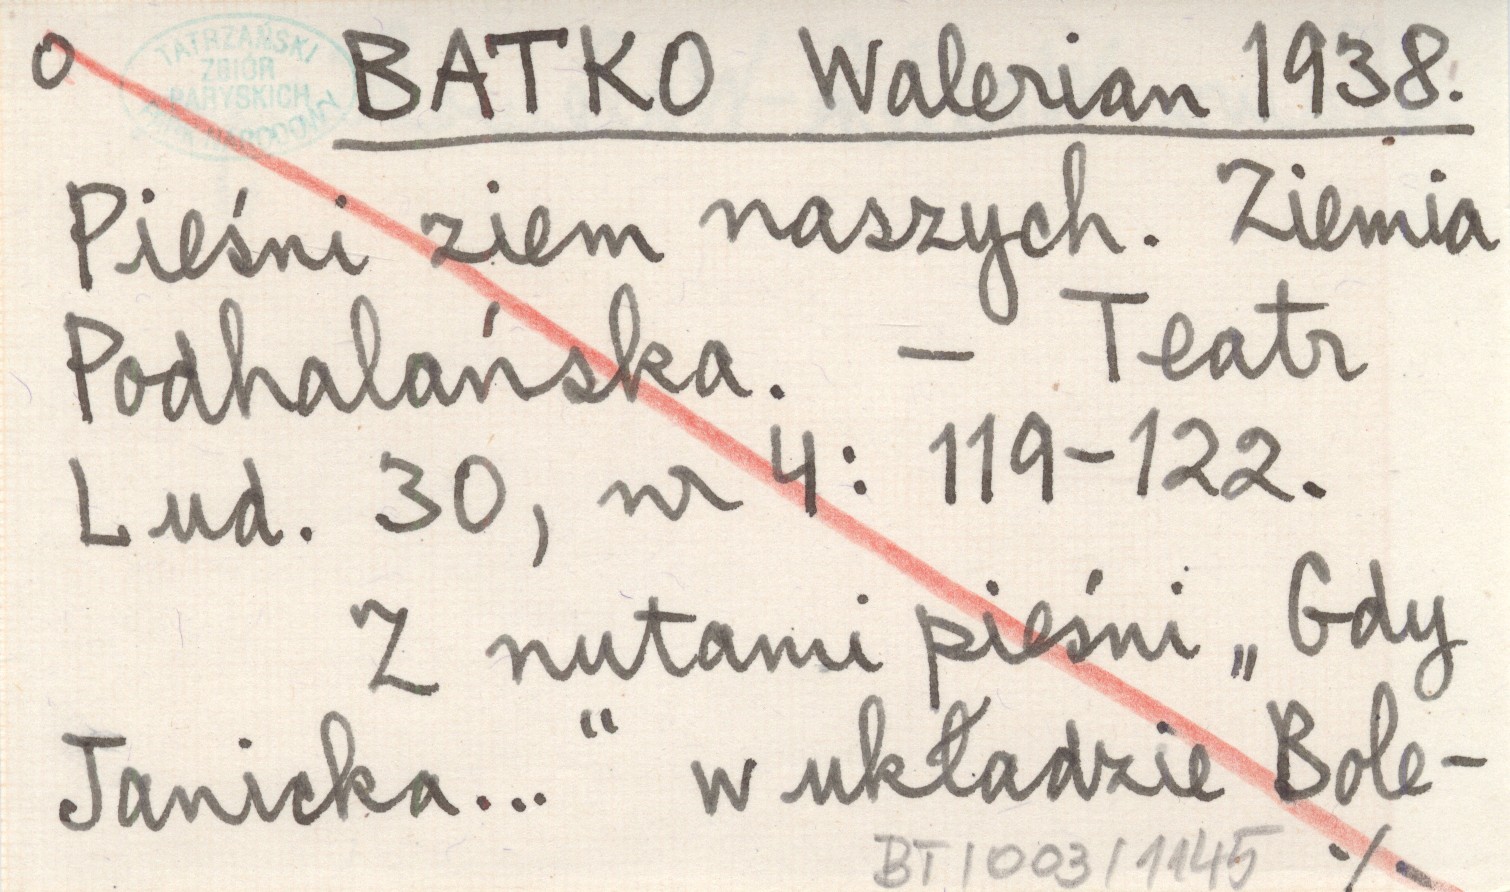 o BATKO Walerian 1938.
TATRZAŃSKI
ZBIÓR
PARYSKICH
Pieśni ziem naszych. Ziemia
Podhalańska. — Teatr
Lud. 30, nr 4: 119-122.
Z nutami pieśni „Gdy
Janicka..." w układzie Bole-
BT/003/1145 ./.